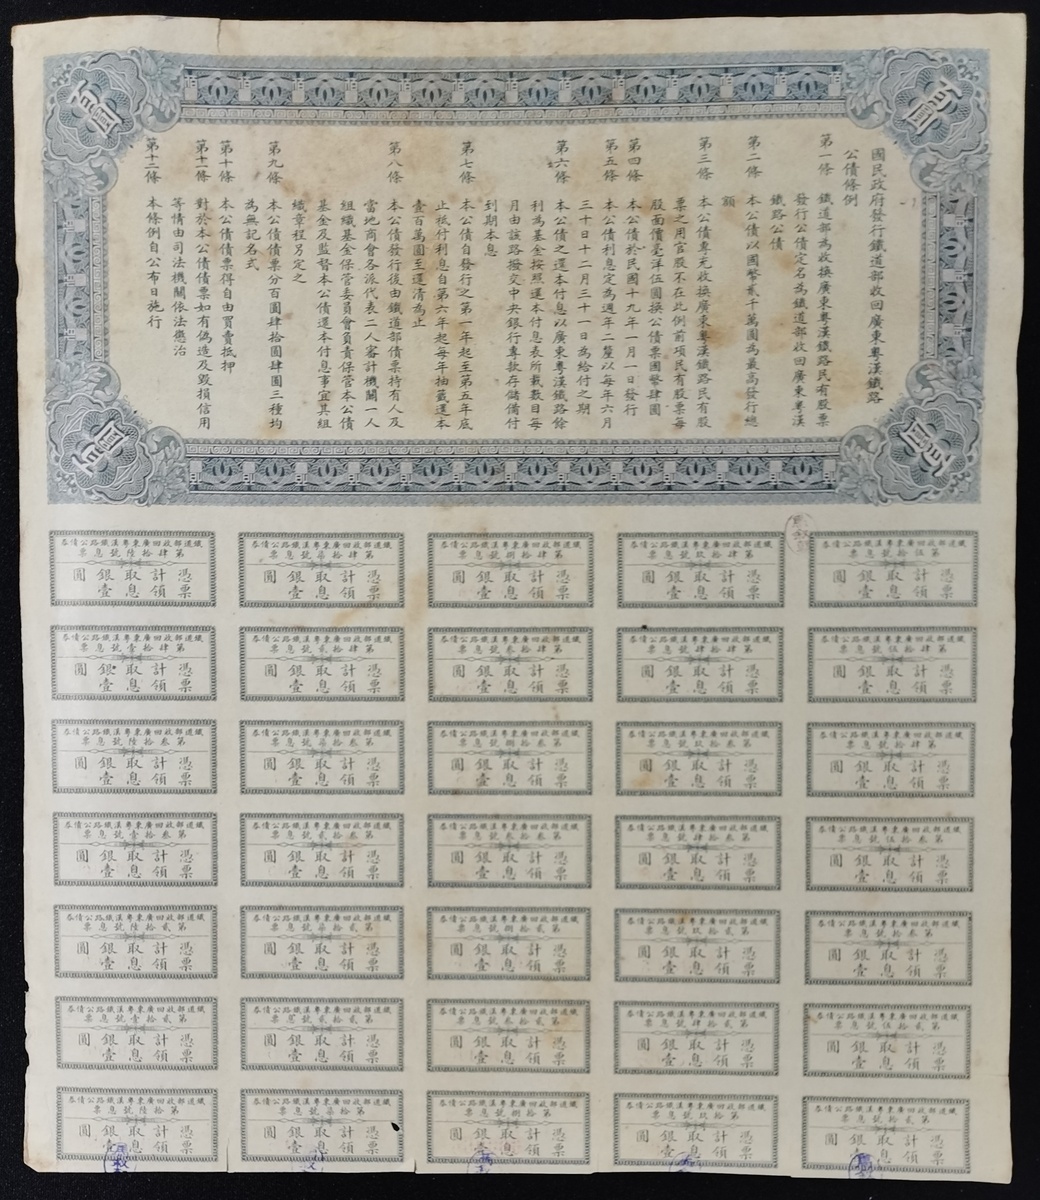 百圓
百圓
國民政府發行鐵道部收回廣東粵漢鐵路
公債條例
第一條 鐵道部為收換廣東粵漢鐵路民有股票
發行公債定名為鐵道部收回廣東粵漢
鐵路公債
第二條 本公債以國幣貳千萬圓為最高發行總
額
第三條 本公債專充收換廣東粵漢鐵路民有股
票之用官股不在此例前項民有股票每
股面價毫洋伍圓換公債票國幣肆圓
第四條 本公債於民國十九年一月一日發行
第五條 本公債利息定為週年二釐以每年六月
三十日十二月三十一日為給付之期
第六條 本公債之還本付息以廣東粵漢鐵路餘
利為基金按照還本付息表所載數目每
月由該路撥交中央銀行專款存儲備付
到期本息
第七條 本公債自發行之第一年起至第五年底
止祇付利息自第六年起每年抽籤還本
壹百萬圓至還清為止
第八條 本公債發行後由鐵道部債票持有人及
當地商會各派代表二人審計機關一人
組織基金保管委員會負責保管本公債
基金及監督本公債還本付息事宜其組
織章程另定之
第九條 本公債債票分百圓肆拾圓肆圓三種均
為無記名式
第十條 本公債債票得自由買賣抵押
第十一條 對於本公債債票如有偽造及毀損信用
等情由司法機關依法懲治
第十二條 本條例自公布日施行
百圓
百圓
鐵道部收回廣東粵漢鐵路公債券
第伍拾號息票
憑票計領取息銀壹圓
鐵道部收回廣東粵漢鐵路公債券
第肆拾玖號息票
憑票計領取息銀壹圓
鐵道部收回廣東粵漢鐵路公債券
第肆拾捌號息票
憑票計領取息銀壹圓
鐵道部收回廣東粵漢鐵路公債券
第肆拾柒號息票
憑票計領取息銀壹圓
鐵道部收回廣東粵漢鐵路公債券
第肆拾陸號息票
憑票計領取息銀壹圓
鐵道部收回廣東粵漢鐵路公債券
第肆拾伍號息票
憑票計領取息銀壹圓
鐵道部收回廣東粵漢鐵路公債券
第肆拾肆號息票
憑票計領取息銀壹圓
鐵道部收回廣東粵漢鐵路公債券
第肆拾叁號息票
憑票計領取息銀壹圓
鐵道部收回廣東粵漢鐵路公債券
第肆拾貳號息票
憑票計領取息銀壹圓
鐵道部收回廣東粵漢鐵路公債券
第肆拾壹號息票
憑票計領取息銀壹圓
鐵道部收回廣東粵漢鐵路公債券
第肆拾號息票
憑票計領取息銀壹圓
鐵道部收回廣東粵漢鐵路公債券
第叁拾玖號息票
憑票計領取息銀壹圓
鐵道部收回廣東粵漢鐵路公債券
第叁拾捌號息票
憑票計領取息銀壹圓
鐵道部收回廣東粵漢鐵路公債券
第叁拾柒號息票
憑票計領取息銀壹圓
鐵道部收回廣東粵漢鐵路公債券
第叁拾陸號息票
憑票計領取息銀壹圓
鐵道部收回廣東粵漢鐵路公債券
第叁拾伍號息票
憑票計領取息銀壹圓
鐵道部收回廣東粵漢鐵路公債券
第叁拾肆號息票
憑票計領取息銀壹圓
鐵道部收回廣東粵漢鐵路公債券
第叁拾叁號息票
憑票計領取息銀壹圓
鐵道部收回廣東粵漢鐵路公債券
第叁拾貳號息票
憑票計領取息銀壹圓
鐵道部收回廣東粵漢鐵路公債券
第叁拾壹號息票
憑票計領取息銀壹圓
鐵道部收回廣東粵漢鐵路公債券
第叁拾號息票
憑票計領取息銀壹圓
鐵道部收回廣東粵漢鐵路公債券
第貳拾玖號息票
憑票計領取息銀壹圓
鐵道部收回廣東粵漢鐵路公債券
第貳拾捌號息票
憑票計領取息銀壹圓
鐵道部收回廣東粵漢鐵路公債券
第貳拾柒號息票
憑票計領取息銀壹圓
鐵道部收回廣東粵漢鐵路公債券
第貳拾陸號息票
憑票計領取息銀壹圓
鐵道部收回廣東粵漢鐵路公債券
第貳拾伍號息票
憑票計領取息銀壹圓
鐵道部收回廣東粵漢鐵路公債券
第貳拾肆號息票
憑票計領取息銀壹圓
鐵道部收回廣東粵漢鐵路公債券
第貳拾叁號息票
憑票計領取息銀壹圓
鐵道部收回廣東粵漢鐵路公債券
第貳拾貳號息票
憑票計領取息銀壹圓
鐵道部收回廣東粵漢鐵路公債券
第貳拾壹號息票
憑票計領取息銀壹圓
鐵道部收回廣東粵漢鐵路公債券
第貳拾號息票
憑票計領取息銀壹圓
鐵道部收回廣東粵漢鐵路公債券
第拾玖號息票
憑票計領取息銀壹圓
鐵道部收回廣東粵漢鐵路公債券
第拾捌號息票
憑票計領取息銀壹圓
鐵道部收回廣東粵漢鐵路公債券
第拾柒號息票
憑票計領取息銀壹圓
鐵道部收回廣東粵漢鐵路公債券
第拾陸號息票
憑票計領取息銀壹圓